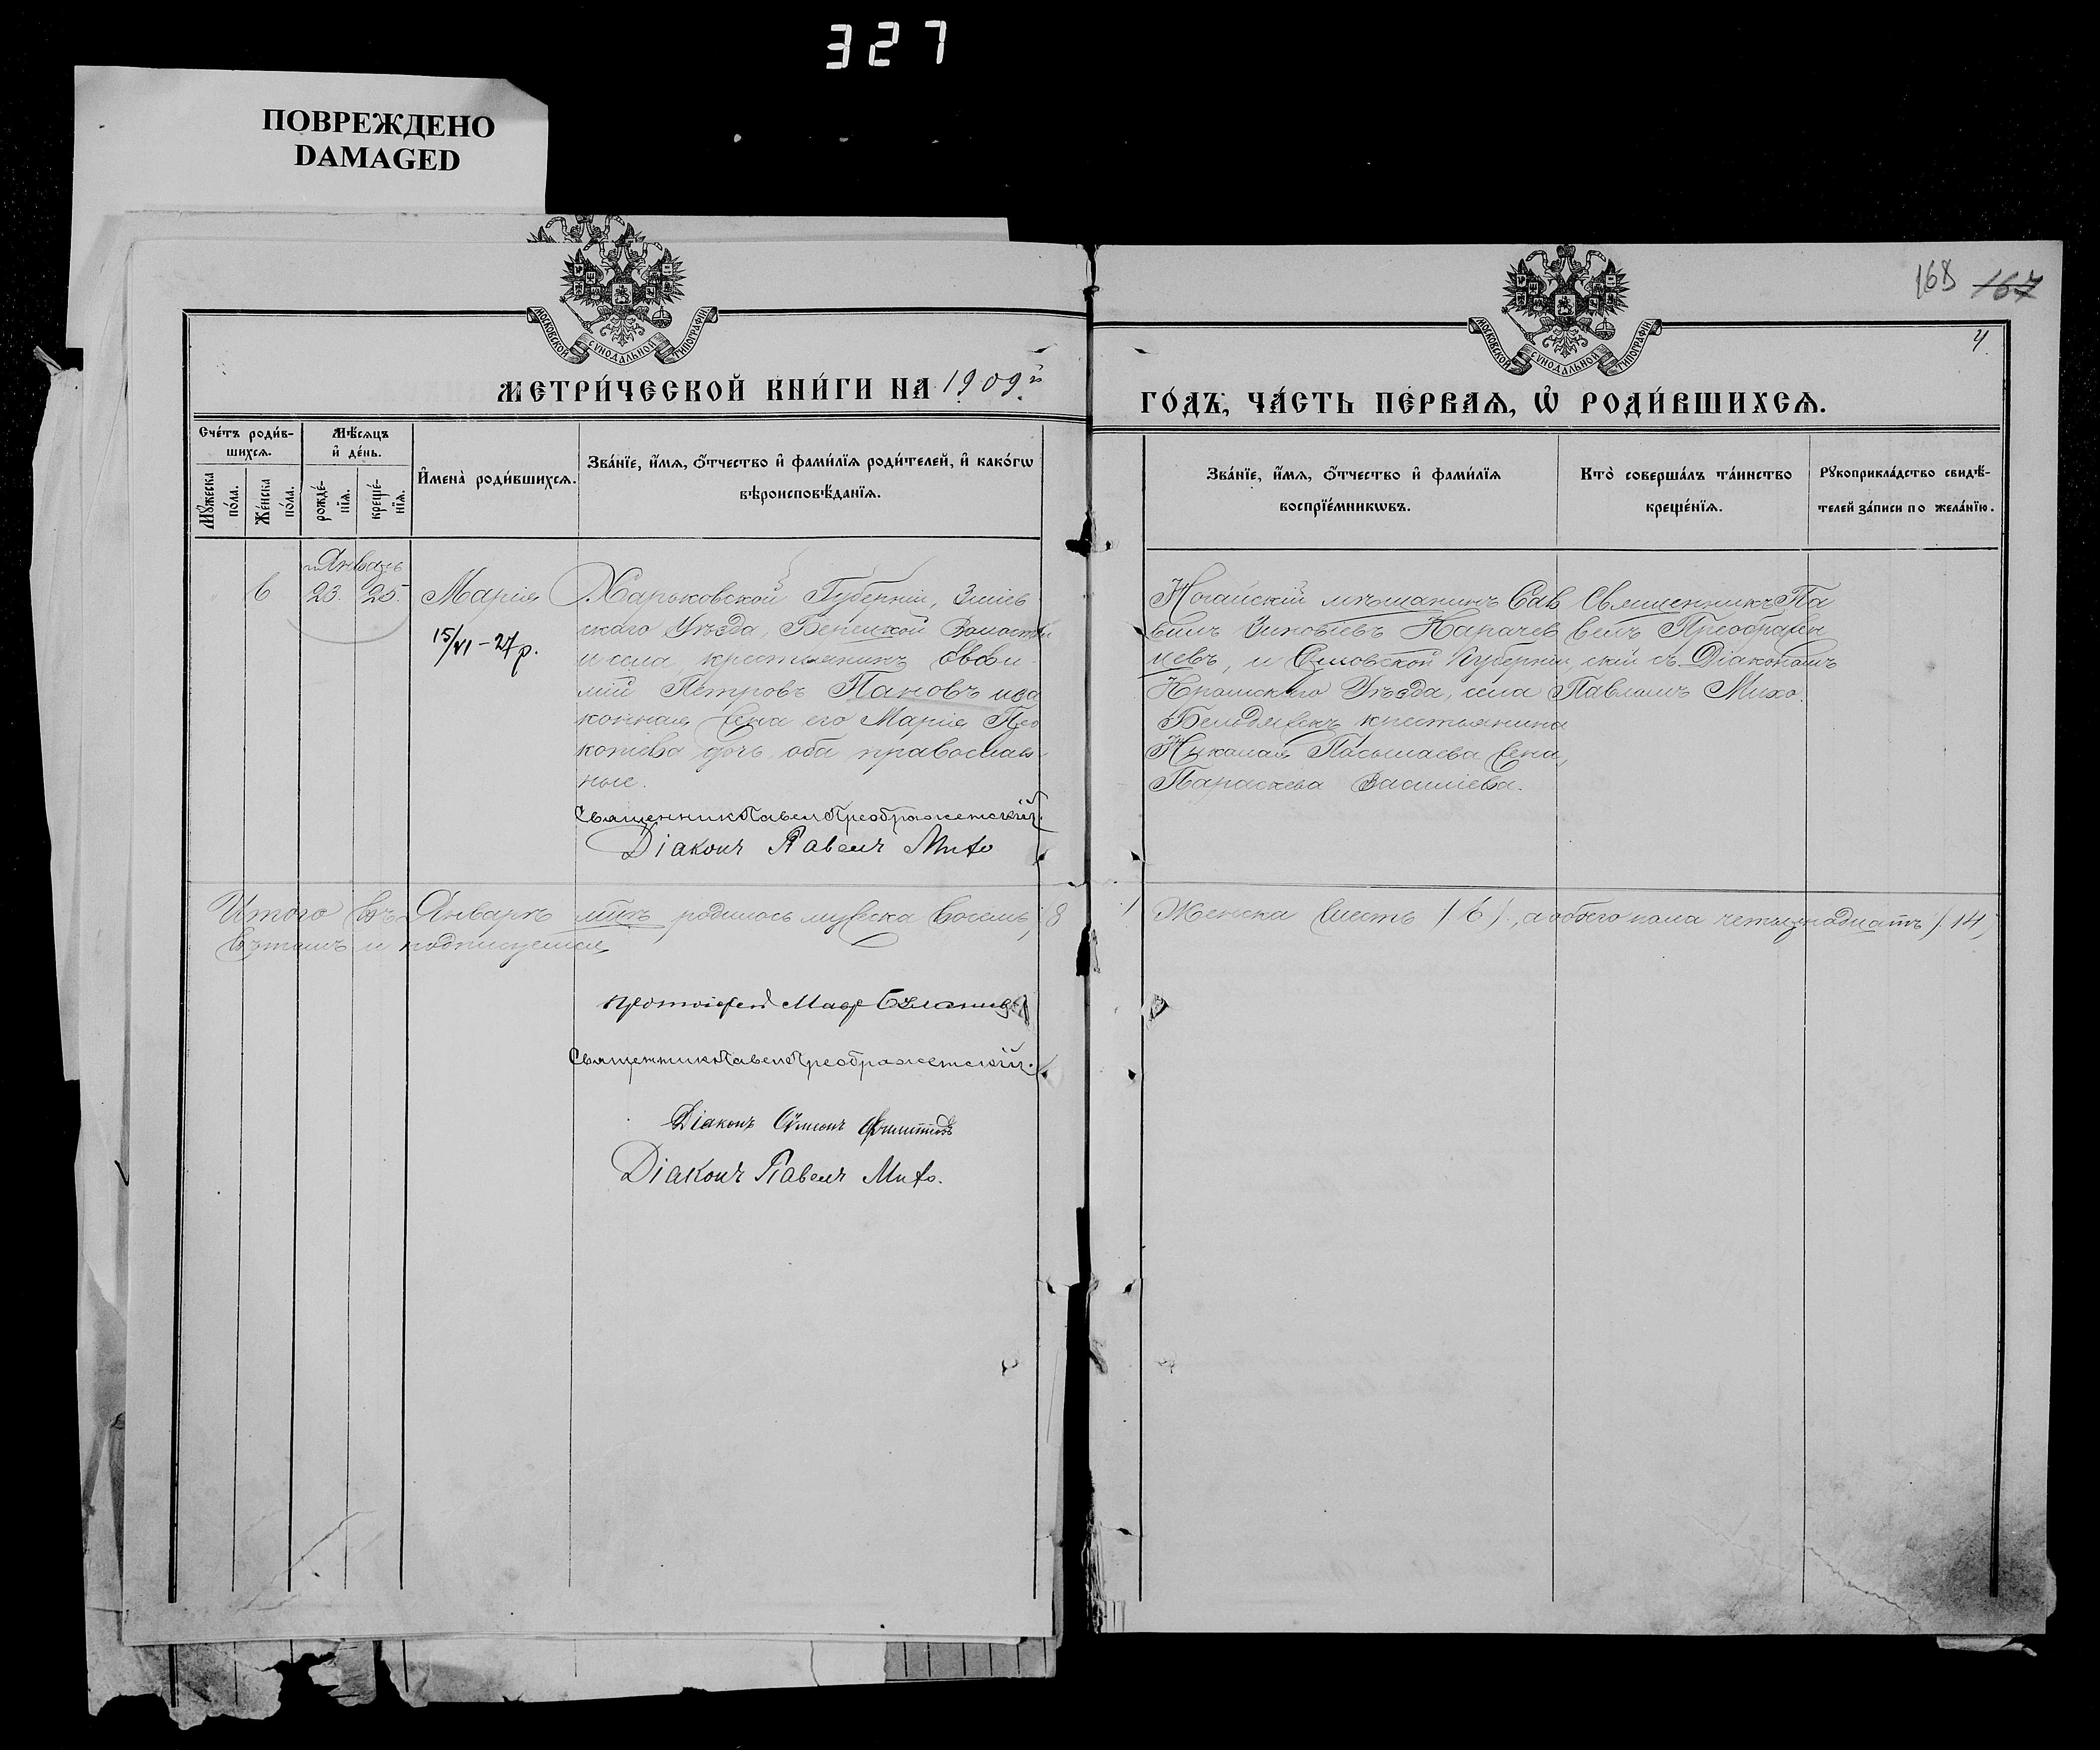 327
ПОВРЕЖДЕНО
DAMAGED
168 167
МОСКОВСКОЙ СѴНОДАЛЬНОЙ ТИПОГРАФІИ
МОСКОВСКОЙ СѴНОДАЛЬНОЙ ТИПОГРАФІИ
4
МЕТРИ́ЧЕСКОЙ КНИ́ГИ НА 1909й
ГО́ДЪ, ЧА́СТЬ ПЕ́РВАѦ, Ѡ҆ РОДИ́ВШИХСѦ.
Сче́тъ роди́в-
шихсѧ.
Мꙋжеска по́ла.
Же́нска по́ла.
Мѣ́сѧцъ
и҆ де́нь.
рожде́-
нїѧ.
креще́-
нїѧ.
И҆мена̀ роди́вшихсѧ.
Зва́нїе, и҆́мѧ, ѻ҆́тчество и҆ фами́лїѧ роди́телей, и҆ како́гѡ
вѣроисповѣ́данїѧ.
Зва́нїе, и҆́мѧ, ѻ҆́тчество и҆ фами́лїѧ
воспрїе́мникѡвъ.
Кто̀ соверша́лъ та́инство
креще́нїѧ.
Рꙋкоприкла́дство свидѣ́-
телей за́писи по жела́нїю.
Январь
6 23. 25. Марія
15/VI – 27 р.
Харьковской Губерніи, Зміев
скаго Уѣзда, Волости
и села крестьянинъ Евфи-
мій Петровъ Пановъ и за
конная жена его Марія Про
копіева дочь оба православ-
ные.
Священник Павел Преображенскій.
Діаконъ Павелъ Михо
Ногайскій мѣщанинъ Сав
Зиновіевъ Карачев
цевъ, и Губерніи,
Кромскаго Уѣзда, села
крестьянина
Николая жена,
Параскева Василіева.
Священникъ Па
велъ Преображен
скій съ Діакономъ
Павломъ Михо.
Итого въ Январѣ м-цѣ родилось мужеска восемь, 8
Женска шесть (6), а обоего пола четырнадцать (14)
въ томъ и подписуемся,
Протоіерей
Священник Павел Преображенскій.
Діаконъ
Діаконъ Павелъ Михо.